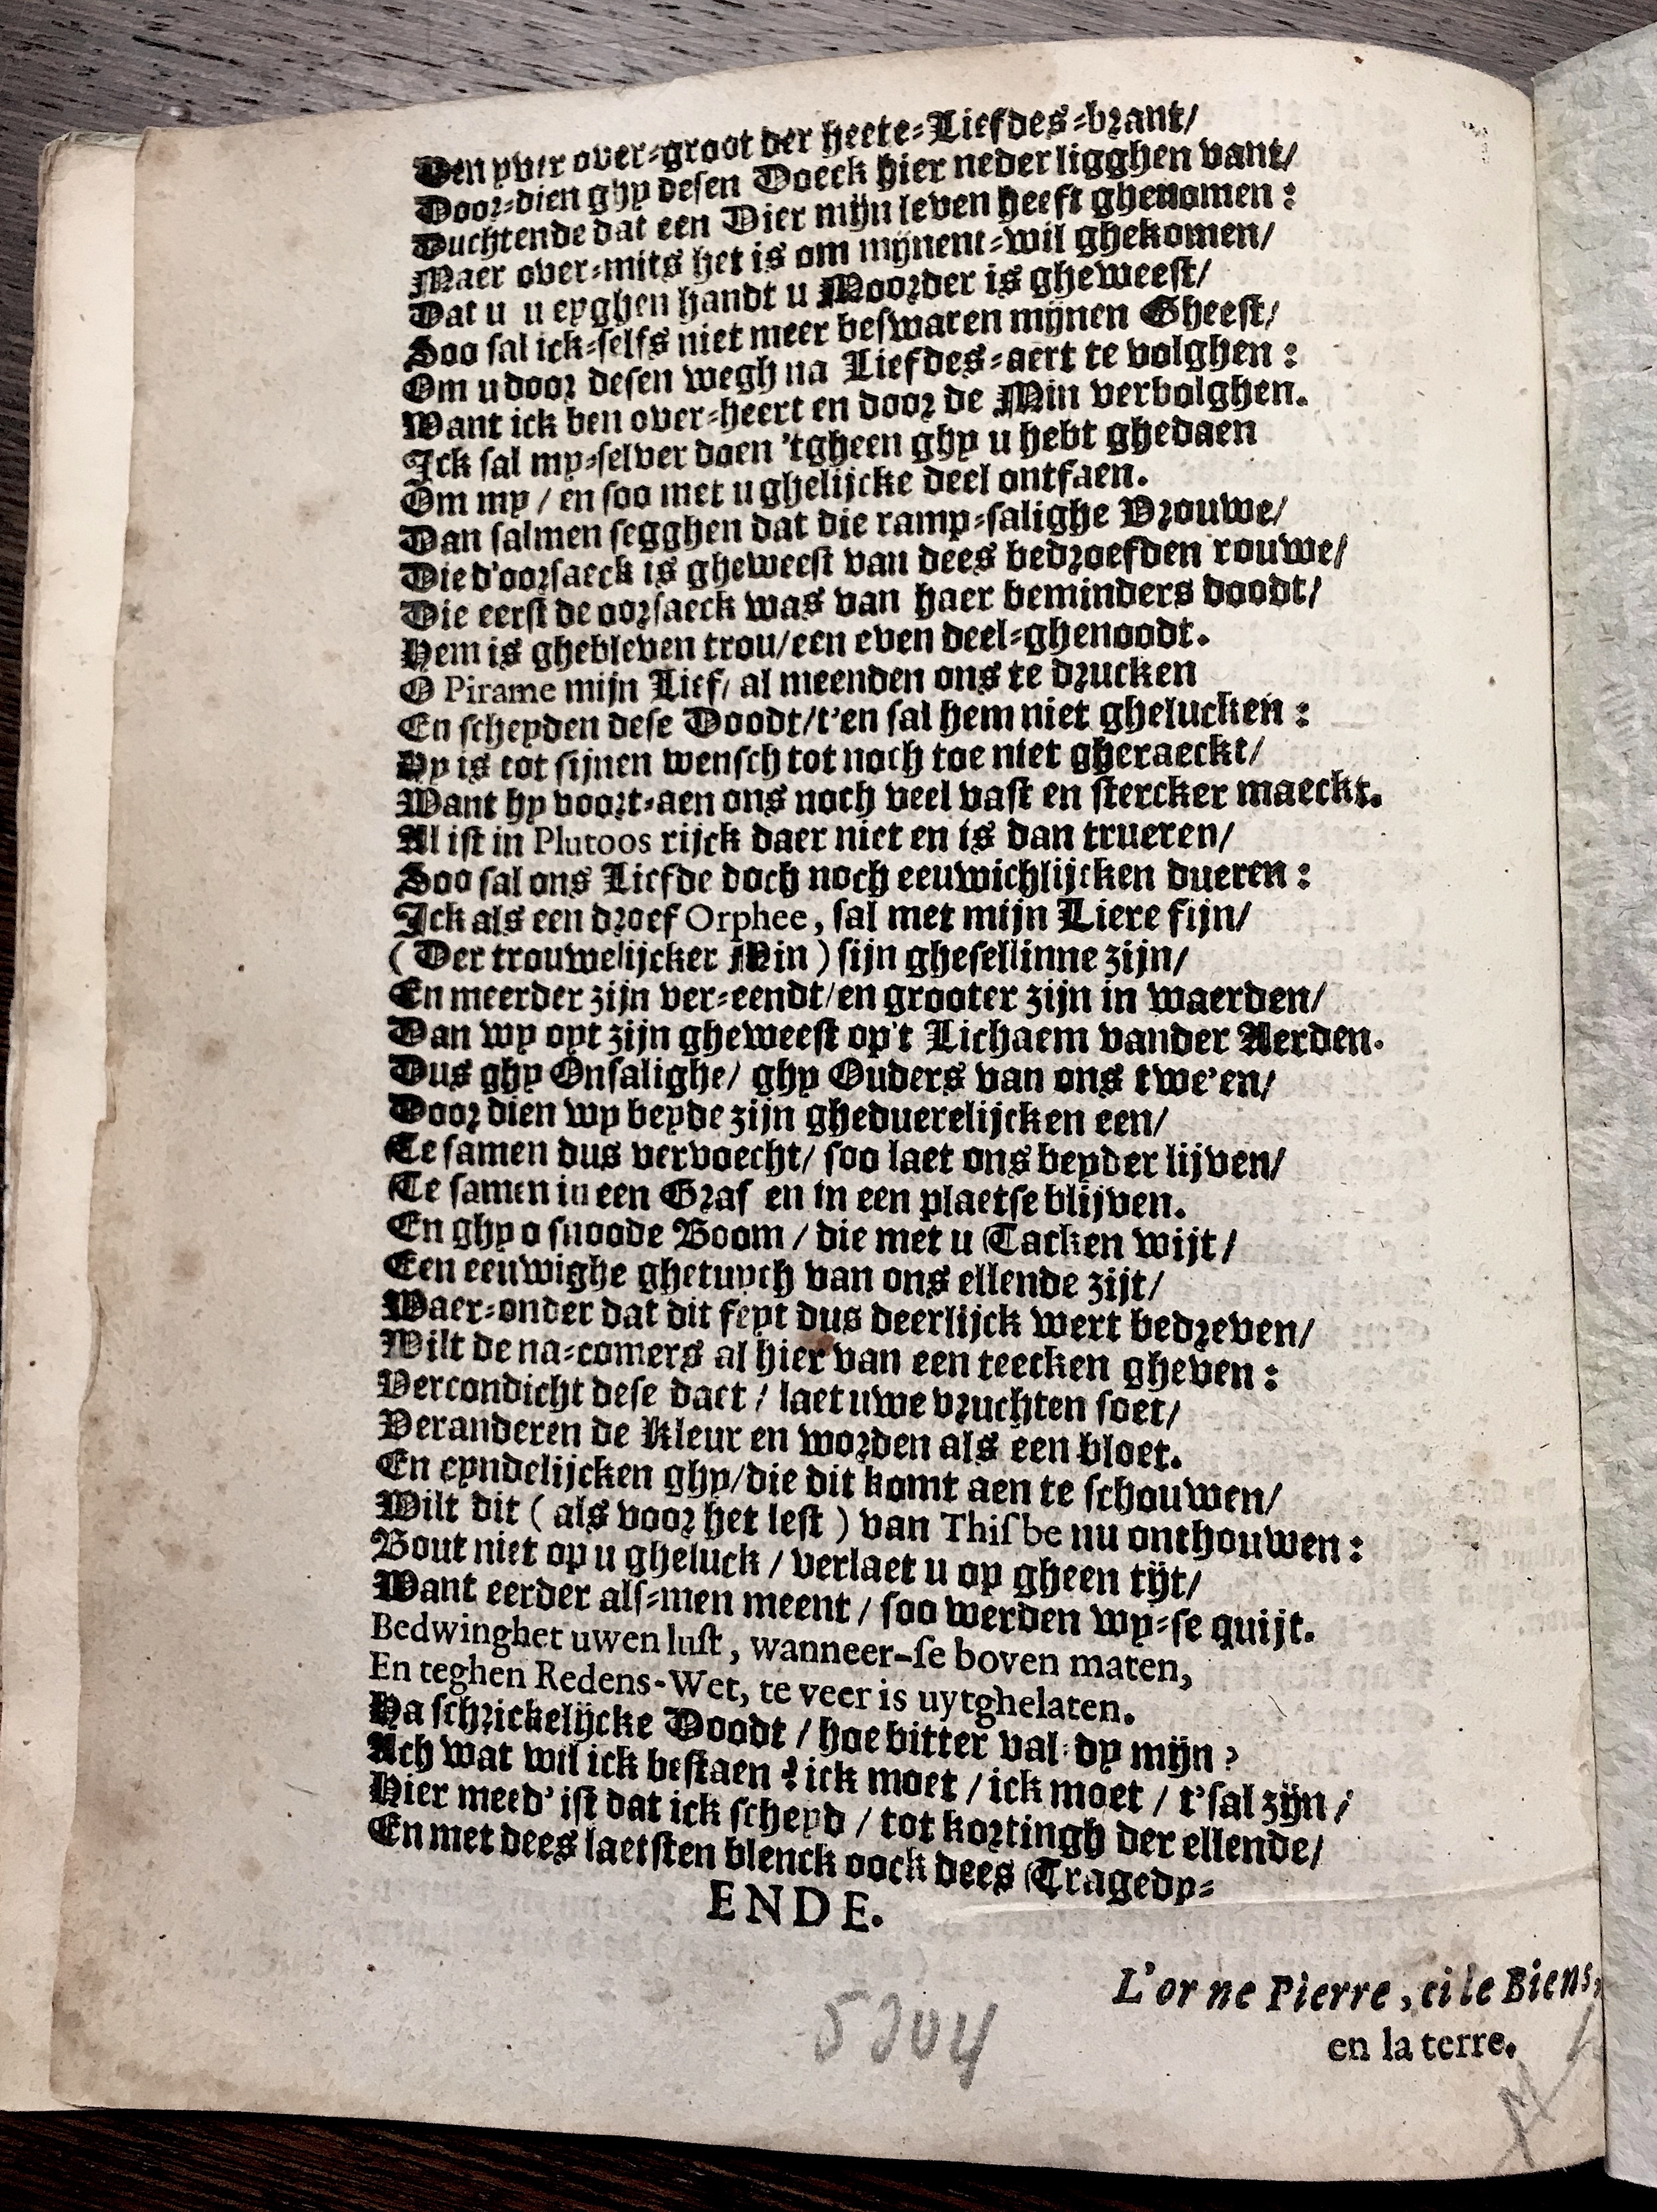 Den yver over-groot der heete-Liefdes-brant/
Door-dien ghy desen Doeck hier neder ligghen vant/
Duchtende dat een Dier mijn leven heeft ghenomen:
Maer over-mits het is om mijnent-wil ghekomen/
Dat u u eyghen handt u Moorder is gheweest/
Soo sal ick-selfs niet meer beswaren mijnen Gheest/
Om u door desen wegh na Liefdes-aert te volghen:
Want ick ben over-heert en door de Min verbolghen.
Ick sal my-selver doen 'tgheen ghy u hebt ghedaen
Om my / en soo met u ghelijcke deel ontfaen.
Dan salmen segghen dat die ramp-salighe Vrouwe/
Die d'oorsaeck is gheweest van dees bedroefden rouwe/
Die eerst de oorsaeck was van haer beminders doodt/
Hem is ghebleven trou/een even deel-ghenoodt.
O Pirame mijn Lief/ al meenden ons te drucken
En scheyden dese Doodt/t'en sal hem niet ghelucken:
Hy is tot sijnen wensch tot noch toe niet gheraeckt/
Want hy voort-aen ons noch veel vast en stercker maeckt.
Al ist in Plutoos rijck daer niet en is dan trueren/
Soo sal ons Liefde doch noch eeuwichlijcken dueren:
Ick als een droef Orphee, sal met mijn Liere fijn/
(Der trouwelijcker Min) sijn ghesellinne zijn/
En meerder zijn ver-eendt/en grooter zijn in waerden/
Dan wy oyt zijn gheweest op't Lichaem vander Aerden.
Dus ghy Onsalighe/ ghy Ouders van ons twe'en/
Door dien wy beyde zijn gheduerelijcken een/
Te samen dus vervoecht/ soo laet ons beyder lijven/
Te samen in een Graf en in een plaetse blijven.
En ghy o snoode Boom / die met u Tacken wijt/
Een eeuwighe ghetuych van ons ellende zijt/
Waer-onder dat dit feyt dus deerlijck wert bedreven/
Wilt de na-comers al hier van een teecken gheven:
Vercondicht dese daet / laet uwe vruchten soet/
Veranderen de Kleur en worden als een bloet.
En eyndelijcken ghy/die dit komt aen te schouwen/
Wilt dit (als voor het lest) van Thisbe nu onthouwen:
Bout niet op u gheluck / verlaet u op gheen tijt/
Want eerder als-men meent / soo werden wy-se quijt.
Bedwinghet uwen lust, wanneer-se boven maten,
En teghen Redens-Wet, te veer is uytghelaten.
Ha schrickelijcke Doodt / hoe bitter val-dy mijn?
Ach wat wil ick bestaen? ick moet / ick moet / t'sal zijn/
Hier meed' ist dat ick scheyd / tot kortingh der ellende/
En met dees laetsten blenck oock dees Tragedy-
ENDE.
L'or ne Pierre, ci le Biens,
en la terre.